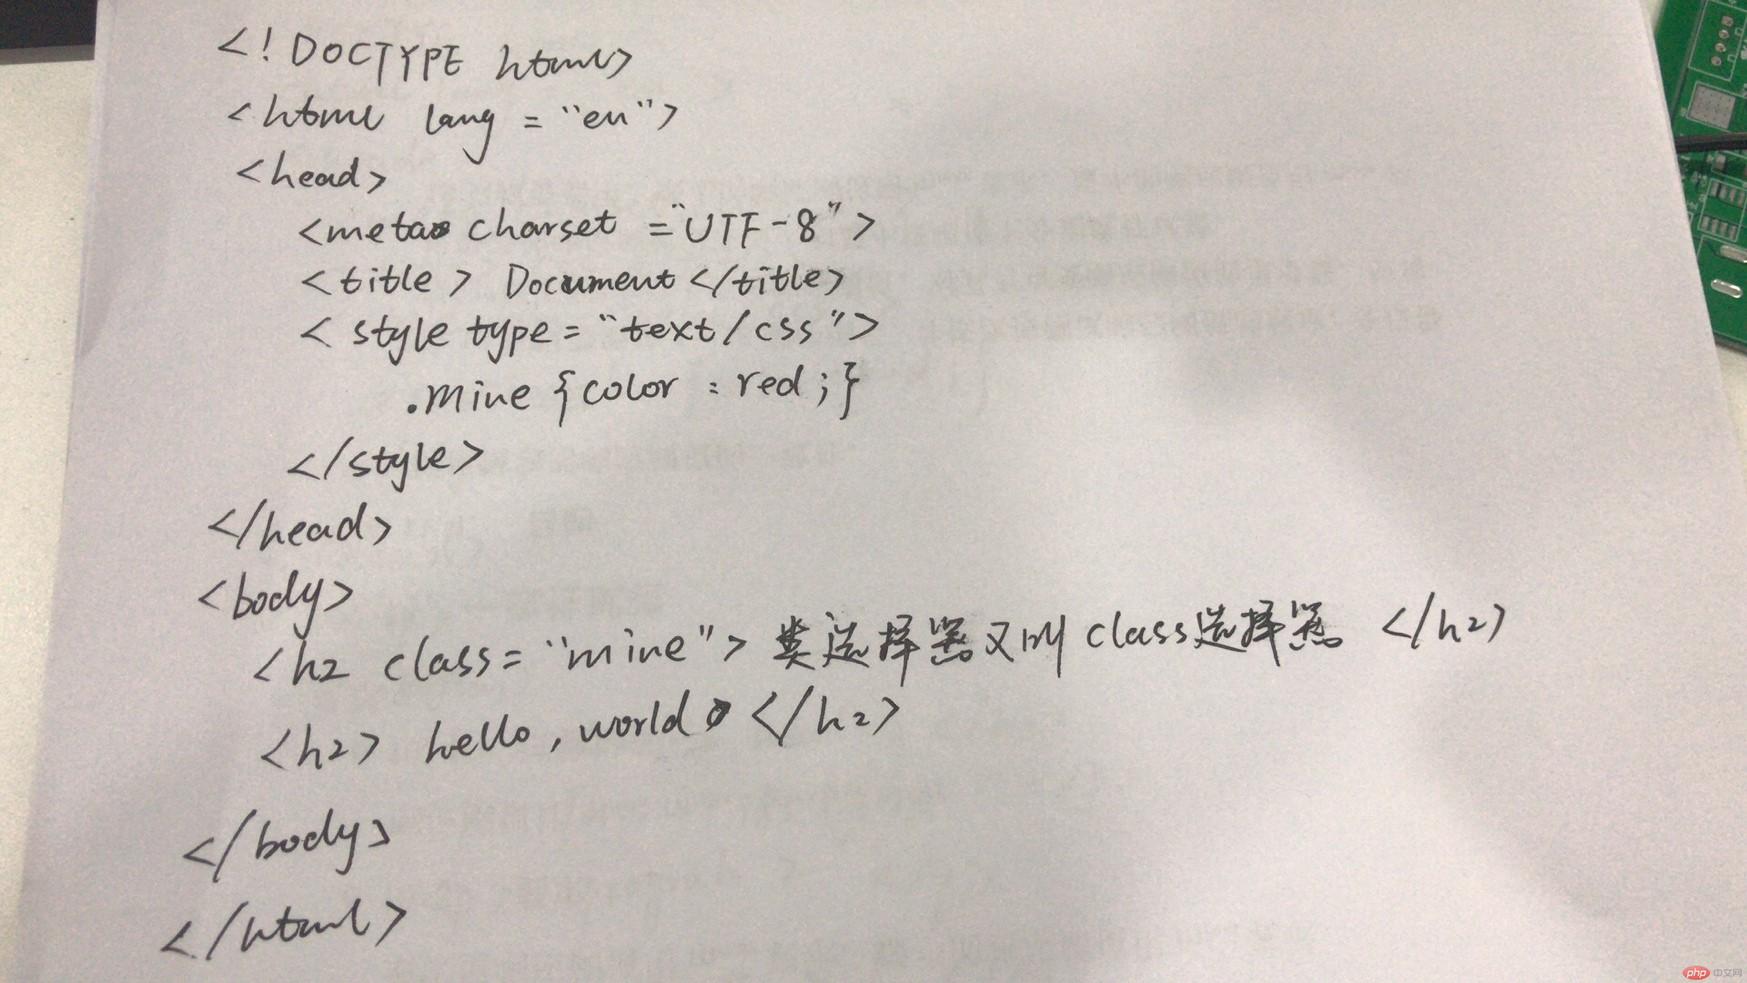 <!DOCTYPE html>
<html lang = "en">
<head>
<meta charset ="UTF-8">
<title> Document </title>
<style type = "text/css">
.mine {color : red ;}
</style>
</head>
<body>
<h2 class= "mine"> 类选择器又叫 class选择器 </h2>
<h2> hello, world </h2>
</body>
</html>
php 中文网